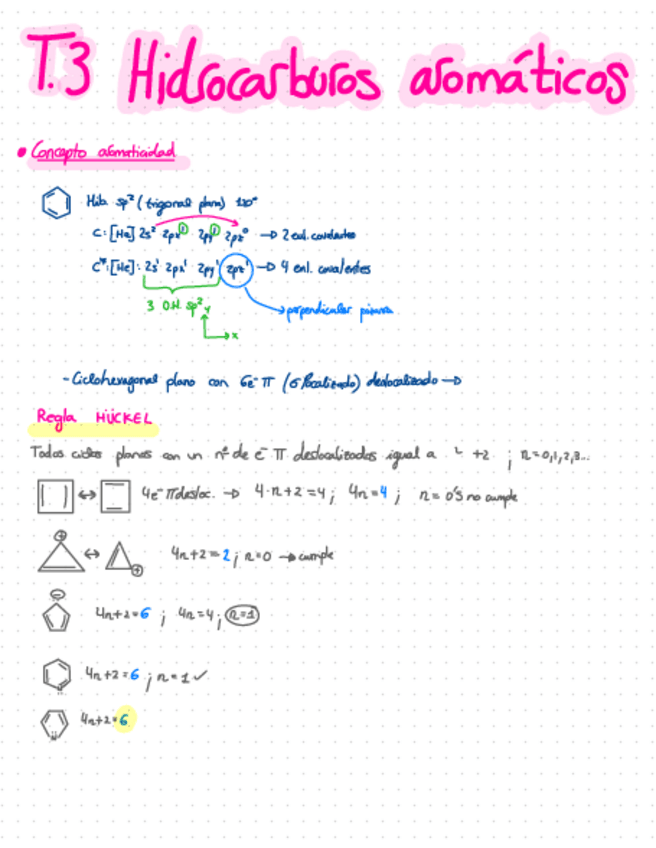 T.3 Hidrocarburos aromáticos
• Concepto aromaticidad
Hib. sp² (trigonal plana) 120°
C: [He] 2s² 2px¹ 2py¹ 2pz⁰ → 2 enl. covalentes
C*: [He]: 2s¹ 2px¹ 2py¹ 2pz¹ → 4 enl. covalentes
3 O.H. sp² y
x
perpendicular
- Ciclohexagonal plano con 6e⁻ π (σ localizado) deslocalizado →
Regla HÜCKEL
Todos ciclos planos con un nº de e⁻ π deslocalizados igual a +2 ; n=0,1,2,3...
↔ 4e⁻ π desloc. → 4·n+2=4; 4n=4; n= 0'5 no cumple
⊕ ↔ ⊕ 4n+2=2; n=0 → cumple
⊖ 4n+2=6 ; 4n=4; n=1
4n+2=6 ; n=1 ✓
4n+2=6